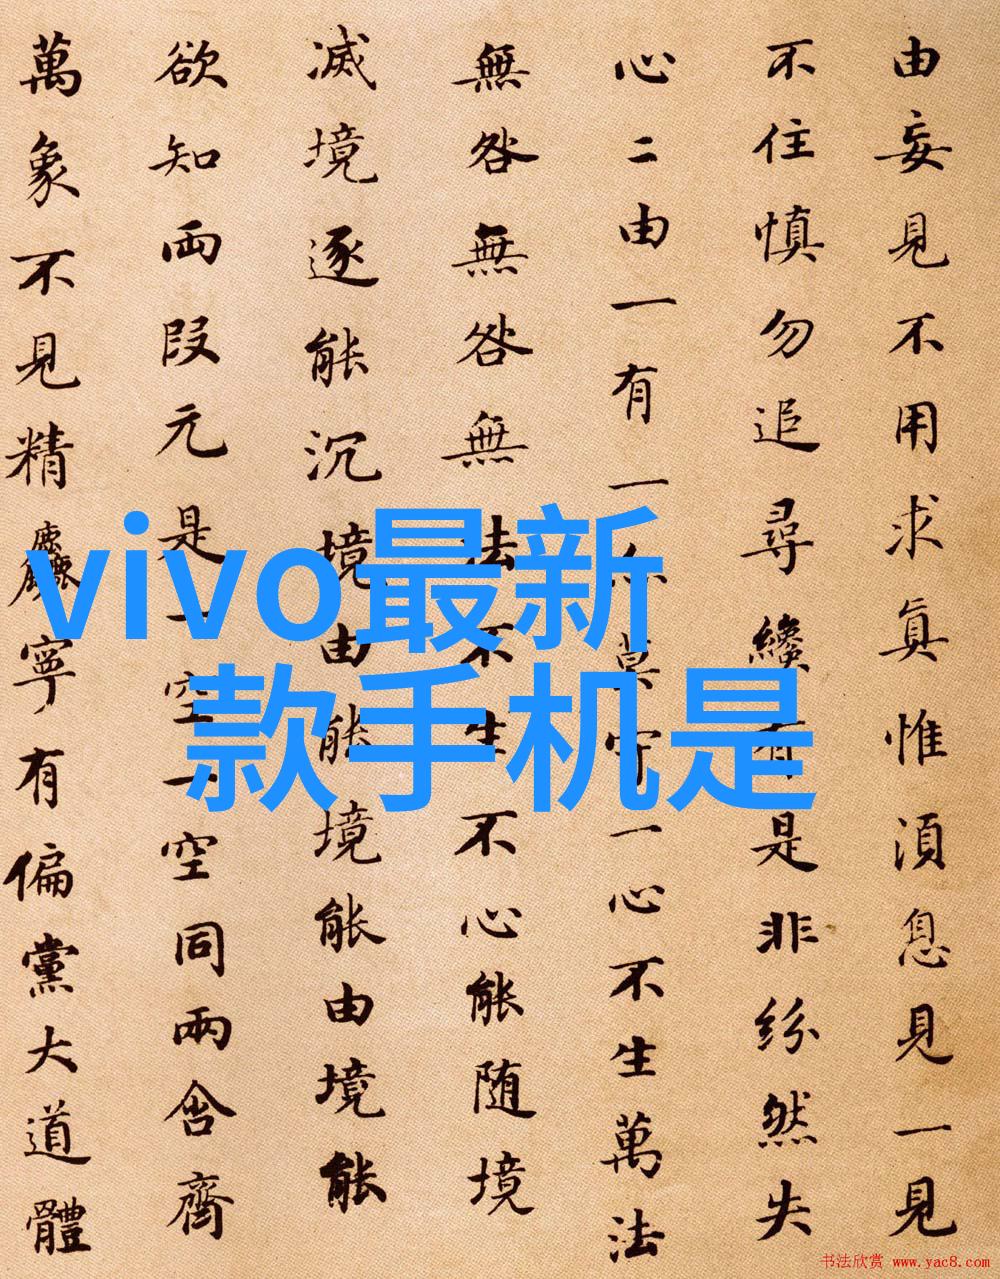 由妄見不用求真惟湏息見一見
不住慎勿追尋纔有是非紛然失
心二由一有一亦莫守一心不生萬法
無咎無咎無法不生不心能随境
滅境逐能沉境由能境能由境能
欲知兩段元是一空一空同兩含齊
萬象不見精麤寧有偏黨大道體
vivo最新
款手机是
书法欣赏 www.yac8.com